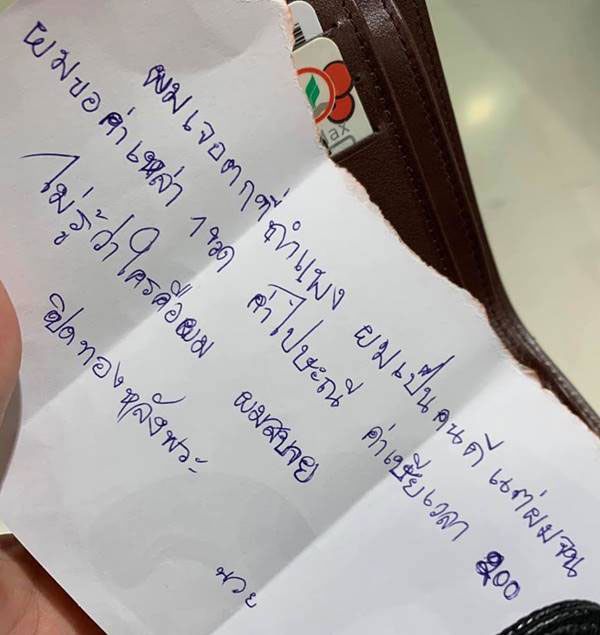 ผมเจอตกที่กำแพง ผมเป็นคนดีแต่ผมจน
ผมขอค่าเหล่า 1 ขวด ค่าไปษะณี ค่าเซียเวลา 200
ไม่รู้ว่าใครคือผม ผมสบาย
ปิดทองหลังพระ
ax